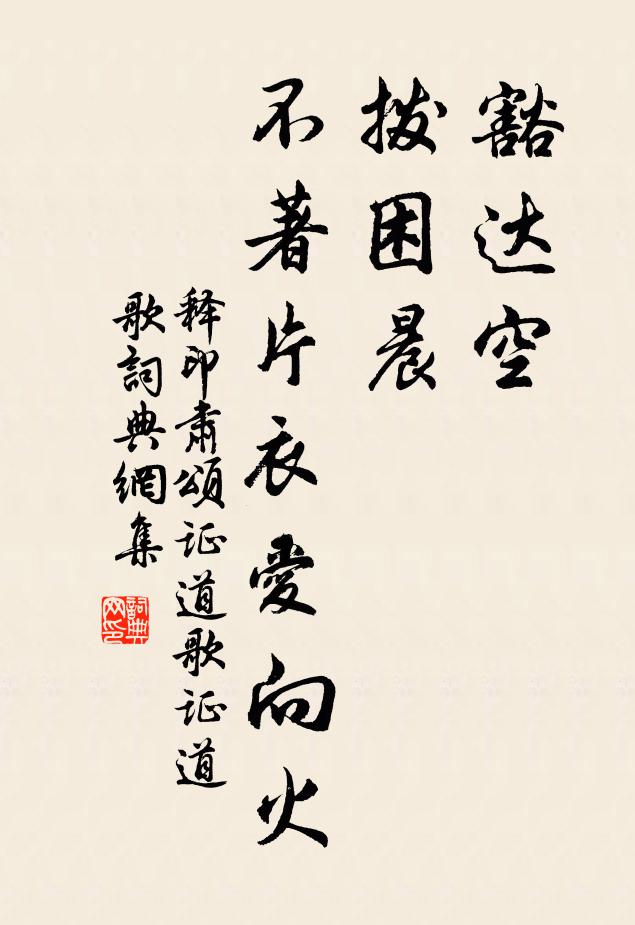 豁达空
拨困晨
不著片衣愛向火
释印肃頌证道歌证道
歌詞典網集
詞典
网印